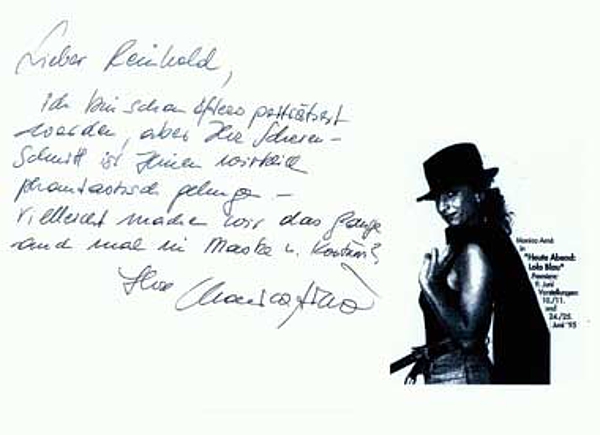 Lieber Reinhold,
ich bin schon öfters porträtiert
worden, aber Ihr Scheren-
schnitt ist Ihnen wirklich
phantastisch gelungen –
vielleicht machen wir das ganze
auch mal in Maske u. Kostüm?
Ihre Monica Arnó
Monica Arnó
in
"Heute Abend:
Lola Blau"
Premiere:
9. Juni
Vorstellungen:
10./11.
und
24./25.
Juni '95